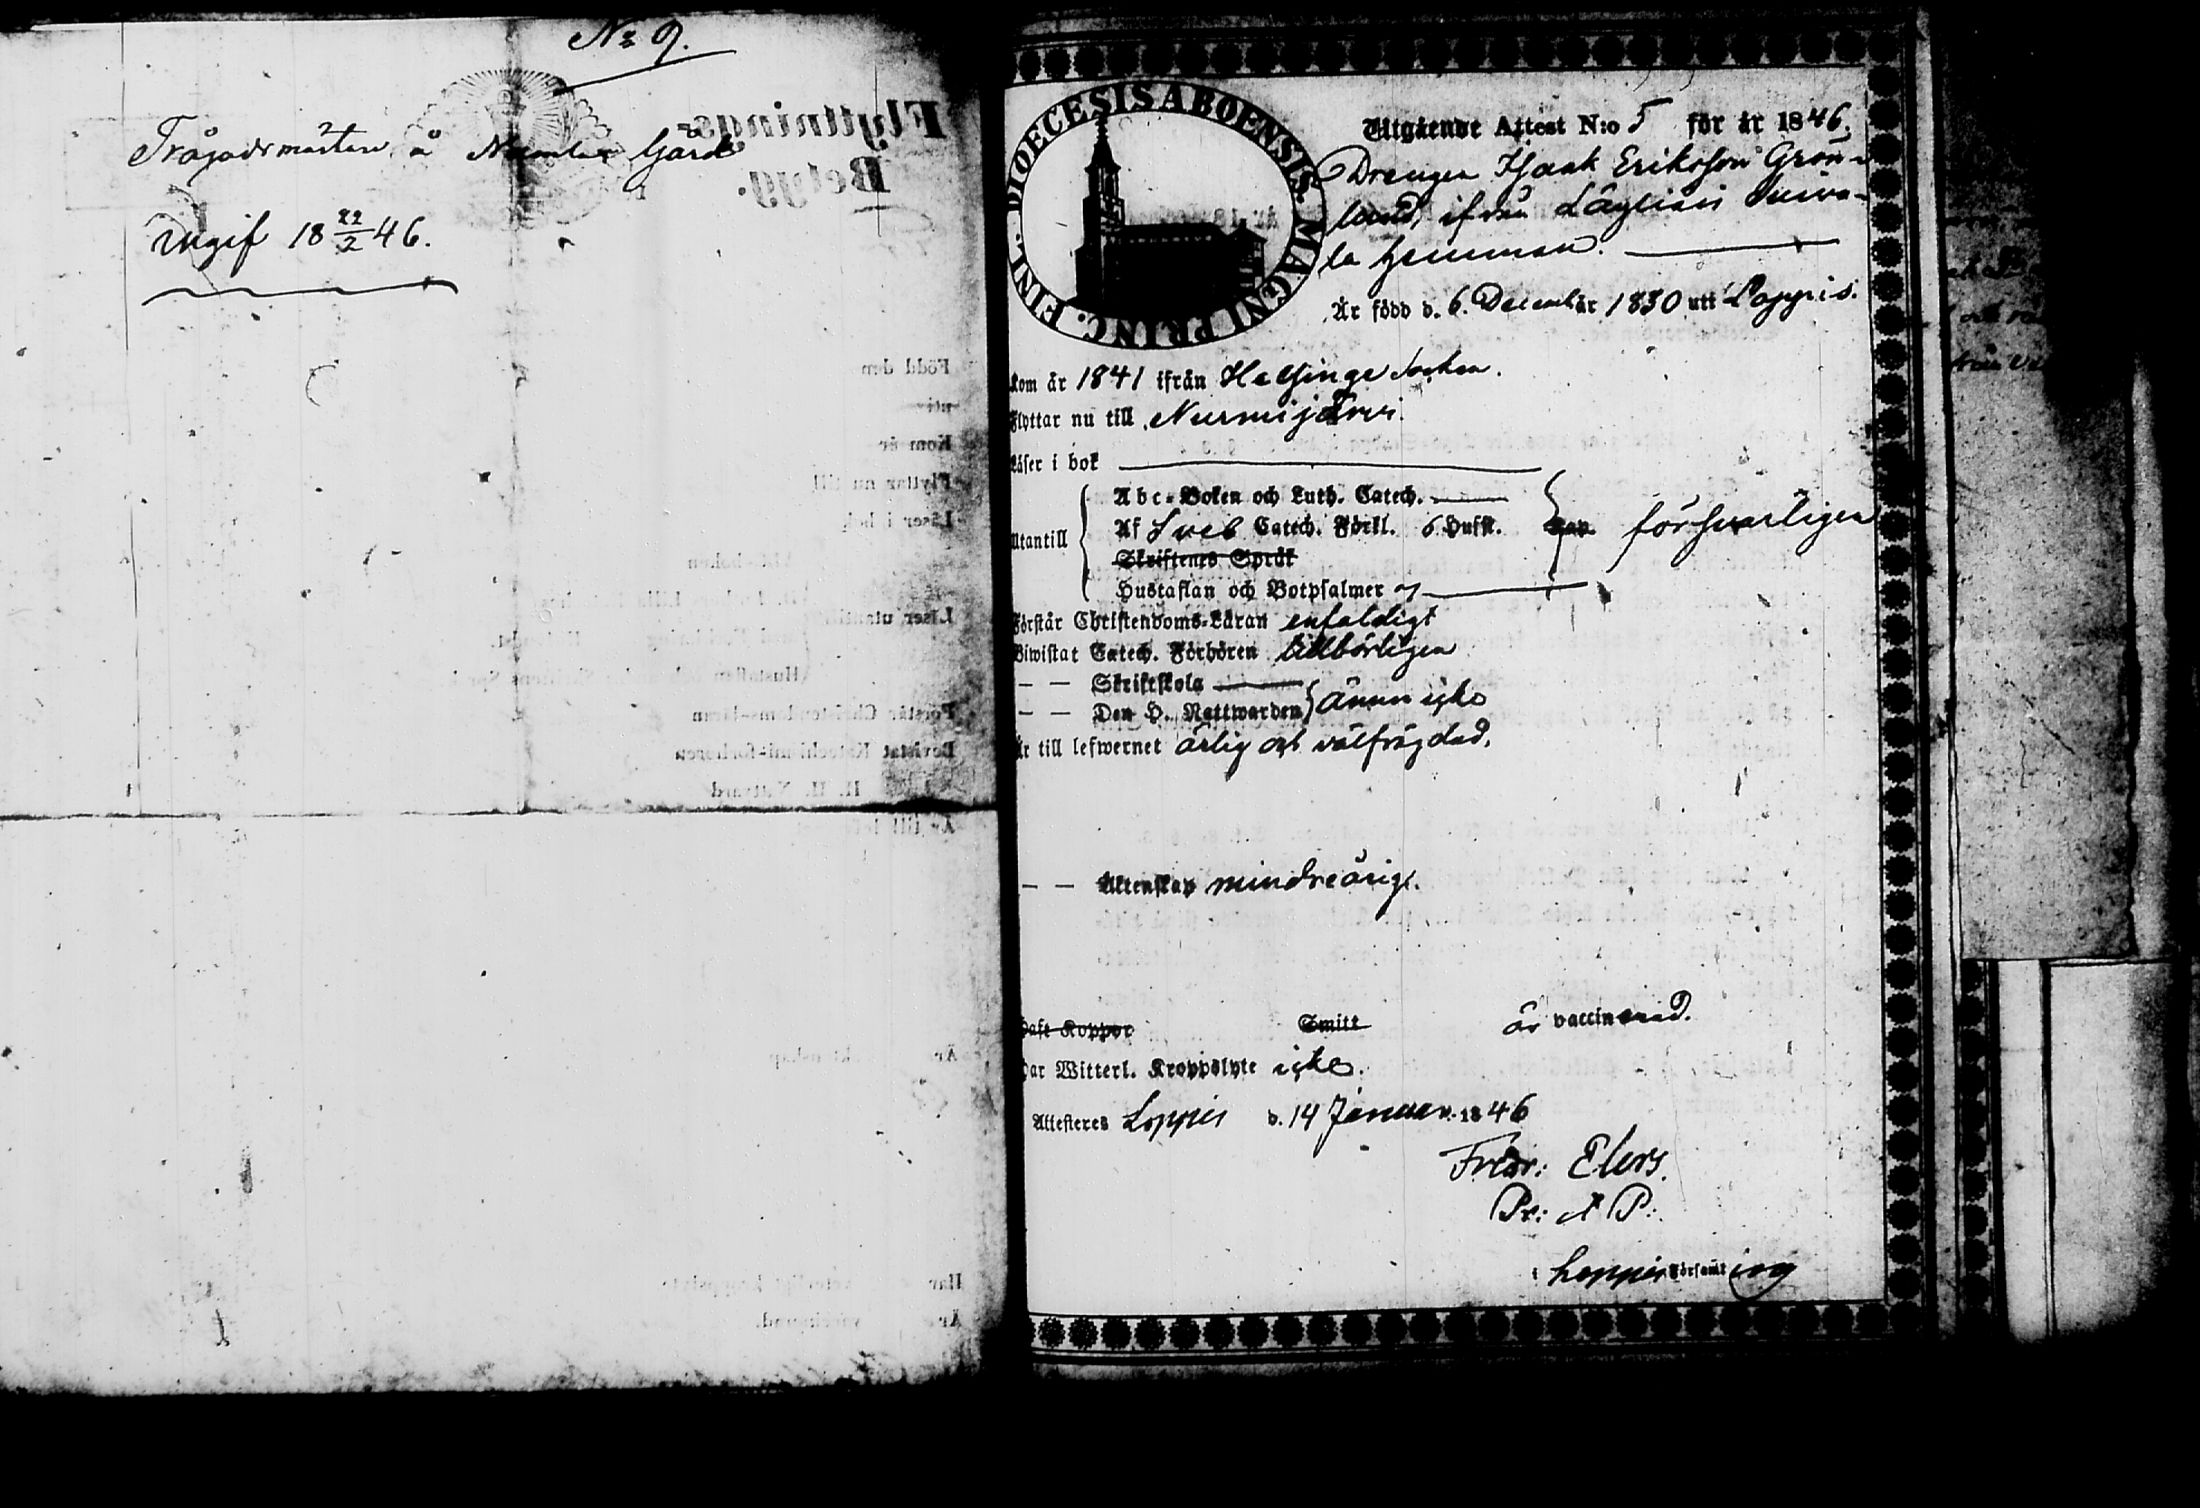 No 9.
Trägårdsmästare å Numlax Gård
Ingif 18 22/2 46.
Flyttnings-
Betyg.
Född den
Kom år
Flyttar nu till
Läser i bok
Läser utantill
Förstår Christendoms-läran
Bevistat Katechismi-förhören
H. H. Nattvard
Är till
Har
Är
DIOECESIS ABOENSIS. MAGNI PRINC. FINL.
Utgående Attest N:o 5 för år 1846.
Drengen Isaak Eriksson Grön-
lund, ifrån Läyliäis
la hemman.
Är född d. 6. December år 1830 uti Loppis.
Kom år 1841 ifrån Helsinge Socken.
Flyttar nu till Nurmijärvi.
Läser i bok
Abc-Boken och Luth. Catech.
Utantill
Af Sveb Catech. Förkl. 6 Hufst. försvarligen
Skriftenes Språk
Hustaflan och Botpsalmer
Förstår Christendoms-Läran enfaldigt
Biwistat Catech. Förhören tillbörligen
— — Skriftskola
— — Den H. Nattwarden ännu icke
Är till lefwernet ärlig och välfrägdad.
— — Äktenskap mindreårig.
Haft Koppor Smitt är vaccinerad.
Har Witterl. Kroppslyte icke.
Attesteres Loppis d. 14 Januar. 1846
Fredr: Elers.
i Loppis Församling